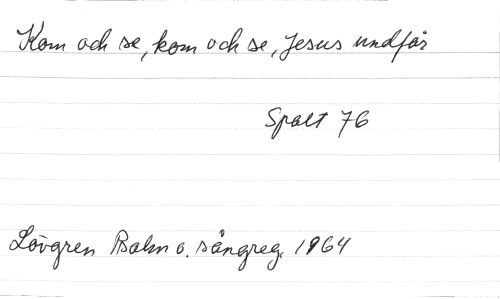 Kom och se, kom och se, Jesus undfår
Spalt 76
Lövgren Psalm o. sångreg. 1964